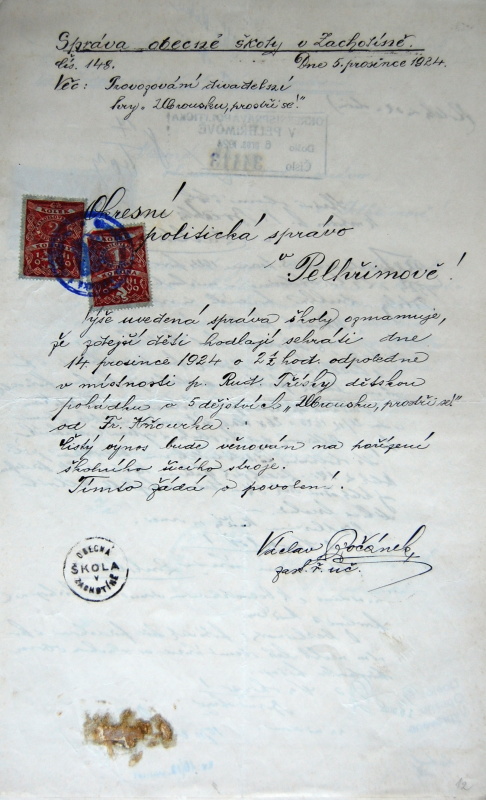 Správa obecné školy v Zachotíně.
čís. 148. Dne 5. prosince 1924.
Věc: Provozování divadelní
hry „Ubrousku, prostři se!"
V PELHŘIMOVĚ
Došlo 6 1924
Číslo 34413
Okresní
politická správo
v Pelhřimově!
KOLEK
2
KOLEK
1
KORUNA
Výše uvedená správa školy oznamuje,
že zdejší děti hodlají sehráti dne
14 prosince 1924 o 2½ hod. odpoledne
v místnosti p. Rud. Třísky dětskou
pohádku o 5 dějstvích „Ubrousku, prostři se!"
od Fr.
Čistý výnos bude věnován na pořízení
školního šicího stroje.
Tímto žádá o povolení.
Václav Bočánek,
zast. ř. uč.
OBECNÁ
ŠKOLA
V
ZACHOTÍNĚ
12